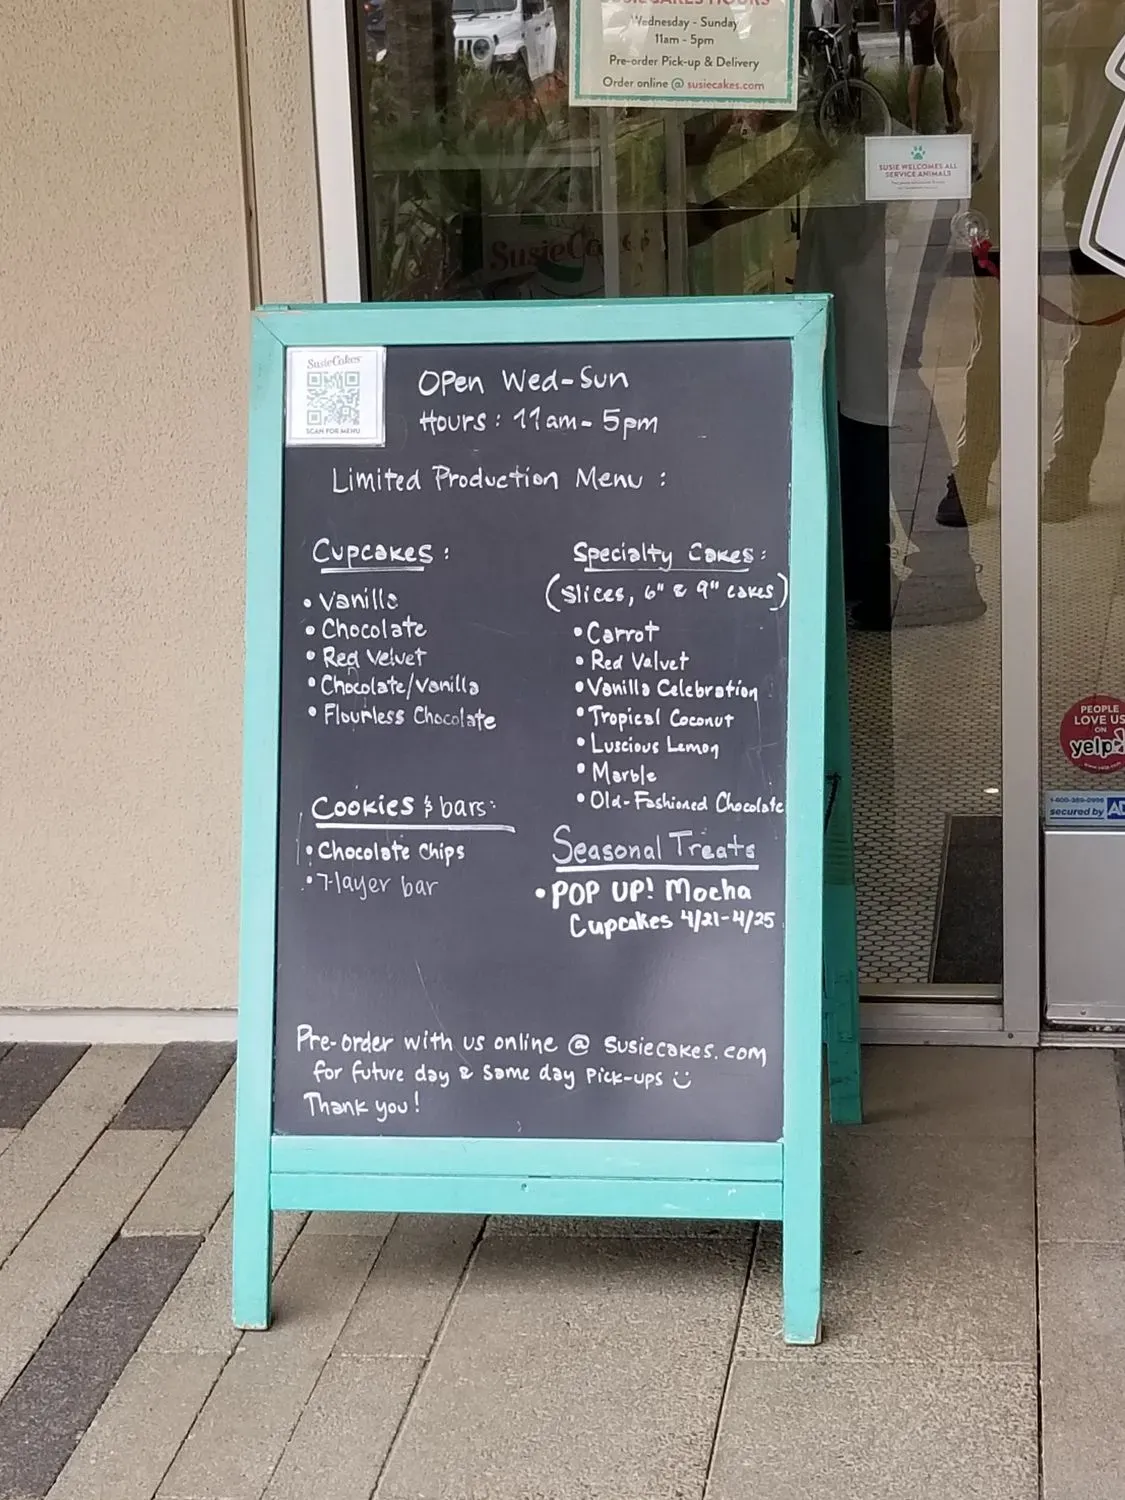 SUSIECAKES HOURS
Wednesday - Sunday
11am - 5pm
Pre-order Pick-up & Delivery
Order online @ susiecakes.com
SUSIE WELCOMES ALL
SERVICE ANIMALS
SusieCakes
SusieCakes
SCAN FOR MENU
Open Wed-Sun
Hours: 11am- 5pm
Limited Production Menu :
Cupcakes :
• Vanilla
• Chocolate
• Red Velvet
• Chocolate/Vanilla
• Flourless Chocolate
Cookies & bars:
• Chocolate Chips
• 7-layer bar
Specialty Cakes :
(Slices, 6" & 9" cakes)
• Carrot
• Red Valvet
• Vanilla Celebration
• Tropical Coconut
• Luscious Lemon
• Marble
• Old-Fashioned Chocolate
Seasonal Treats
• POP UP! Mocha
Cupcakes 4/21-4/25
Pre-order with us online @ susiecakes.com
for future day & same day Pick-ups
Thank you!
PEOPLE
LOVE US
ON
yelp
1-800-389-0996
secured by